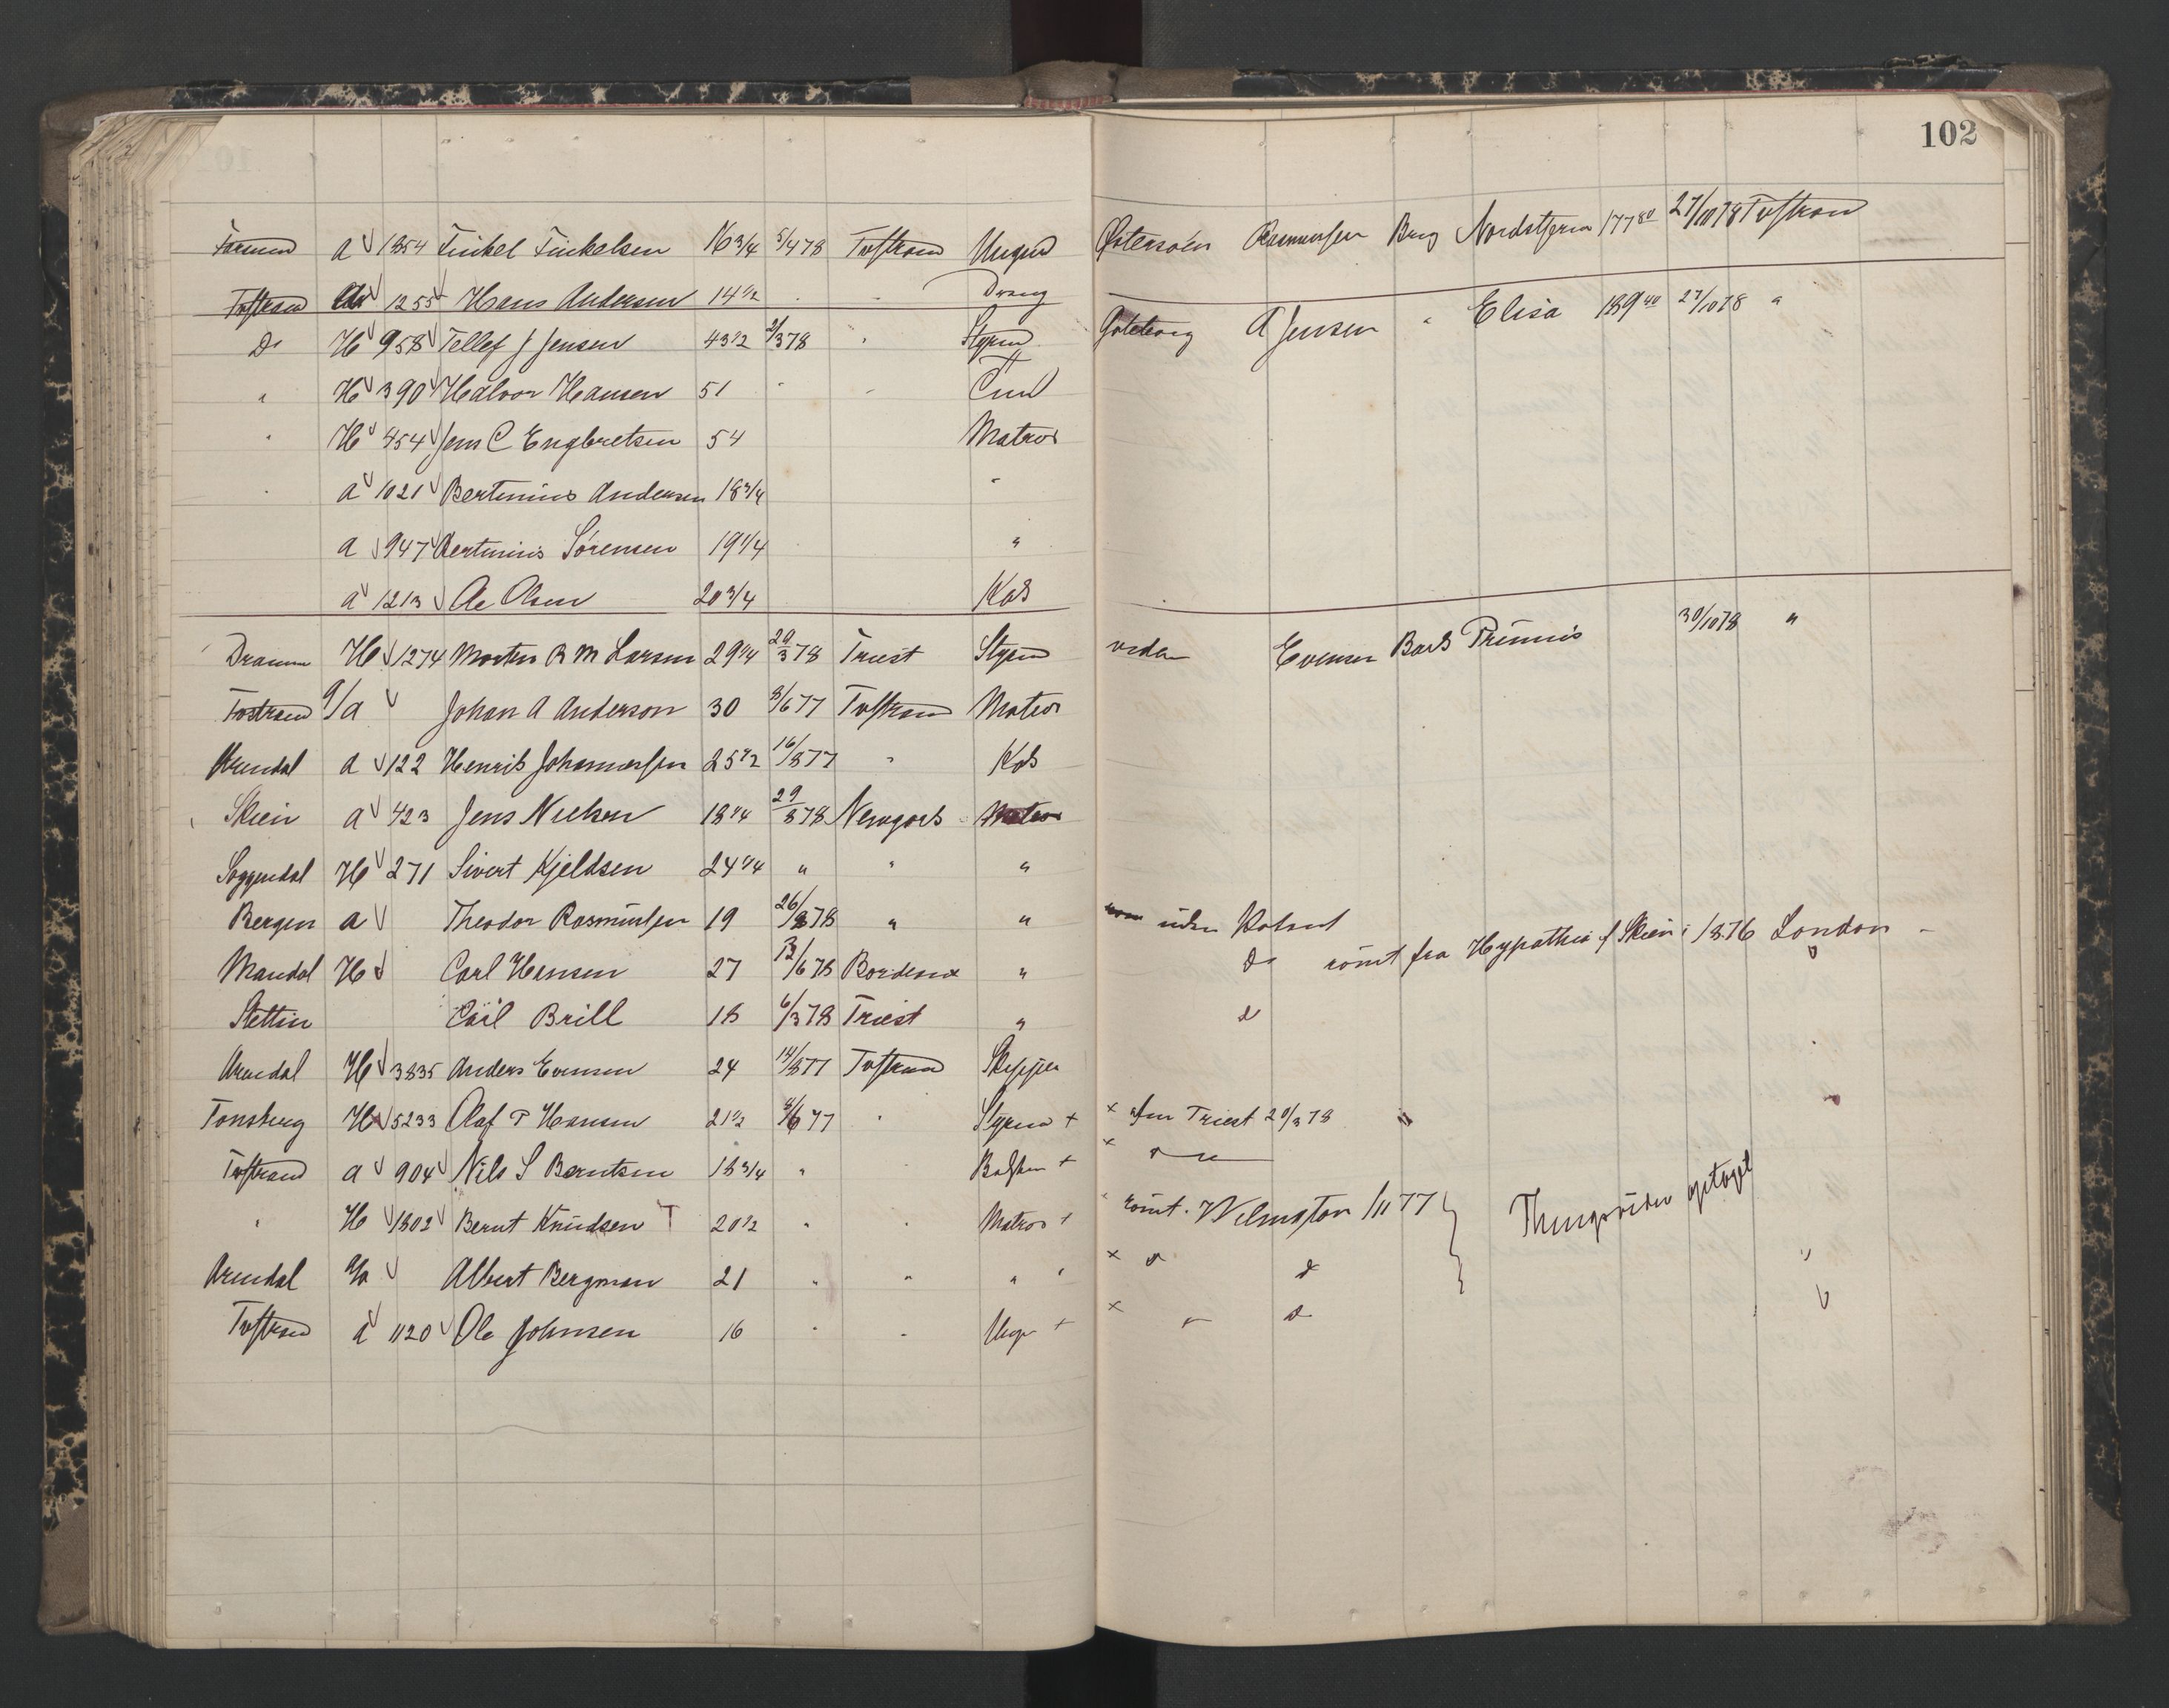 102
a 1254 Tinkel Tinkelsen 16 3/4 5/4 78 Tvstrand Ungd Østersøen Rasmussen Brig Nordstjern 177 80 27/10 78 Tvstrand
Tvstrand 1255 Hans Andersen 14 1/2 Dreng
Do H 958 Tellef J Jensen 43 1/2 2/3 78 " Styrm Goteborg A Jensen " Elisa 189 40 27/10 78 "
" H 390 Halvor Hansen 51 " "
" H 454 Jens C Engbretsen 54 Matros
" a 1021 Bertinius Andersen 18 3/4 "
a 947 Bertinius Sørensen 19 1/4 "
a 1213 Ae Olsen 20 3/4 Kok
Dramm H 1274 Morten B M Larsen 29 1/4 29/3 78 Triest Styrm Evensen Bark Primus 30/10 78 "
Tvstrand a Johan A Anderson 30 8/6 77 Tvstrand Matros
Arendal a 122 Henrik Johannessen 25 1/2 16/8 77 " Kok
Skien a 423 Jens Nielsen 18 1/4 29/8 78 Newyork Matros
Soggendal H 271 Sivert Kjeldsen 24 1/4 " " "
Bergen a Theodor Rasmussen 19 26/8 78 " " uden
Mandal H Carl Hansen 27 /6 78 Bordeux " Do römt fra Hypathia f Skien i /8 76 London
Stettin Carl Brill 18 6/3 78 Triest " d
Arendal H 3835 Anders Evensen 24 14/8 77 Tvstrand Skipper
Tonsberg H 5233 Olaf P Hansen 21 1/2 8/6 77 " Styrm + × afm Triest 20/3 78 "
Tvstrand a 904 Nils S Berntsen 18 3/4 " " +
" H 1802 Bernt Knudsen T 20 1/2 " " Matros + römt Wilmington /11 77 } optaget
Arendal Albert Bergman 21 " " " × d d
Tvstrand a 1120 Ole Johnsen 16 " " Ung + × d